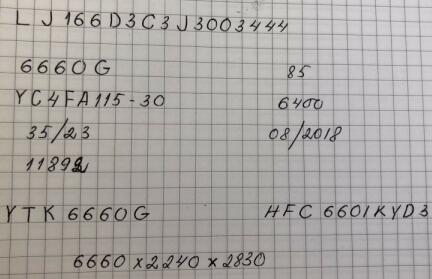 LJ166D3C3J3003444
6660G 85
YC4FA115-30 6400
35/23 08/2018
11892
YTK6660G HFC6601KYD3
6660x2240x2830